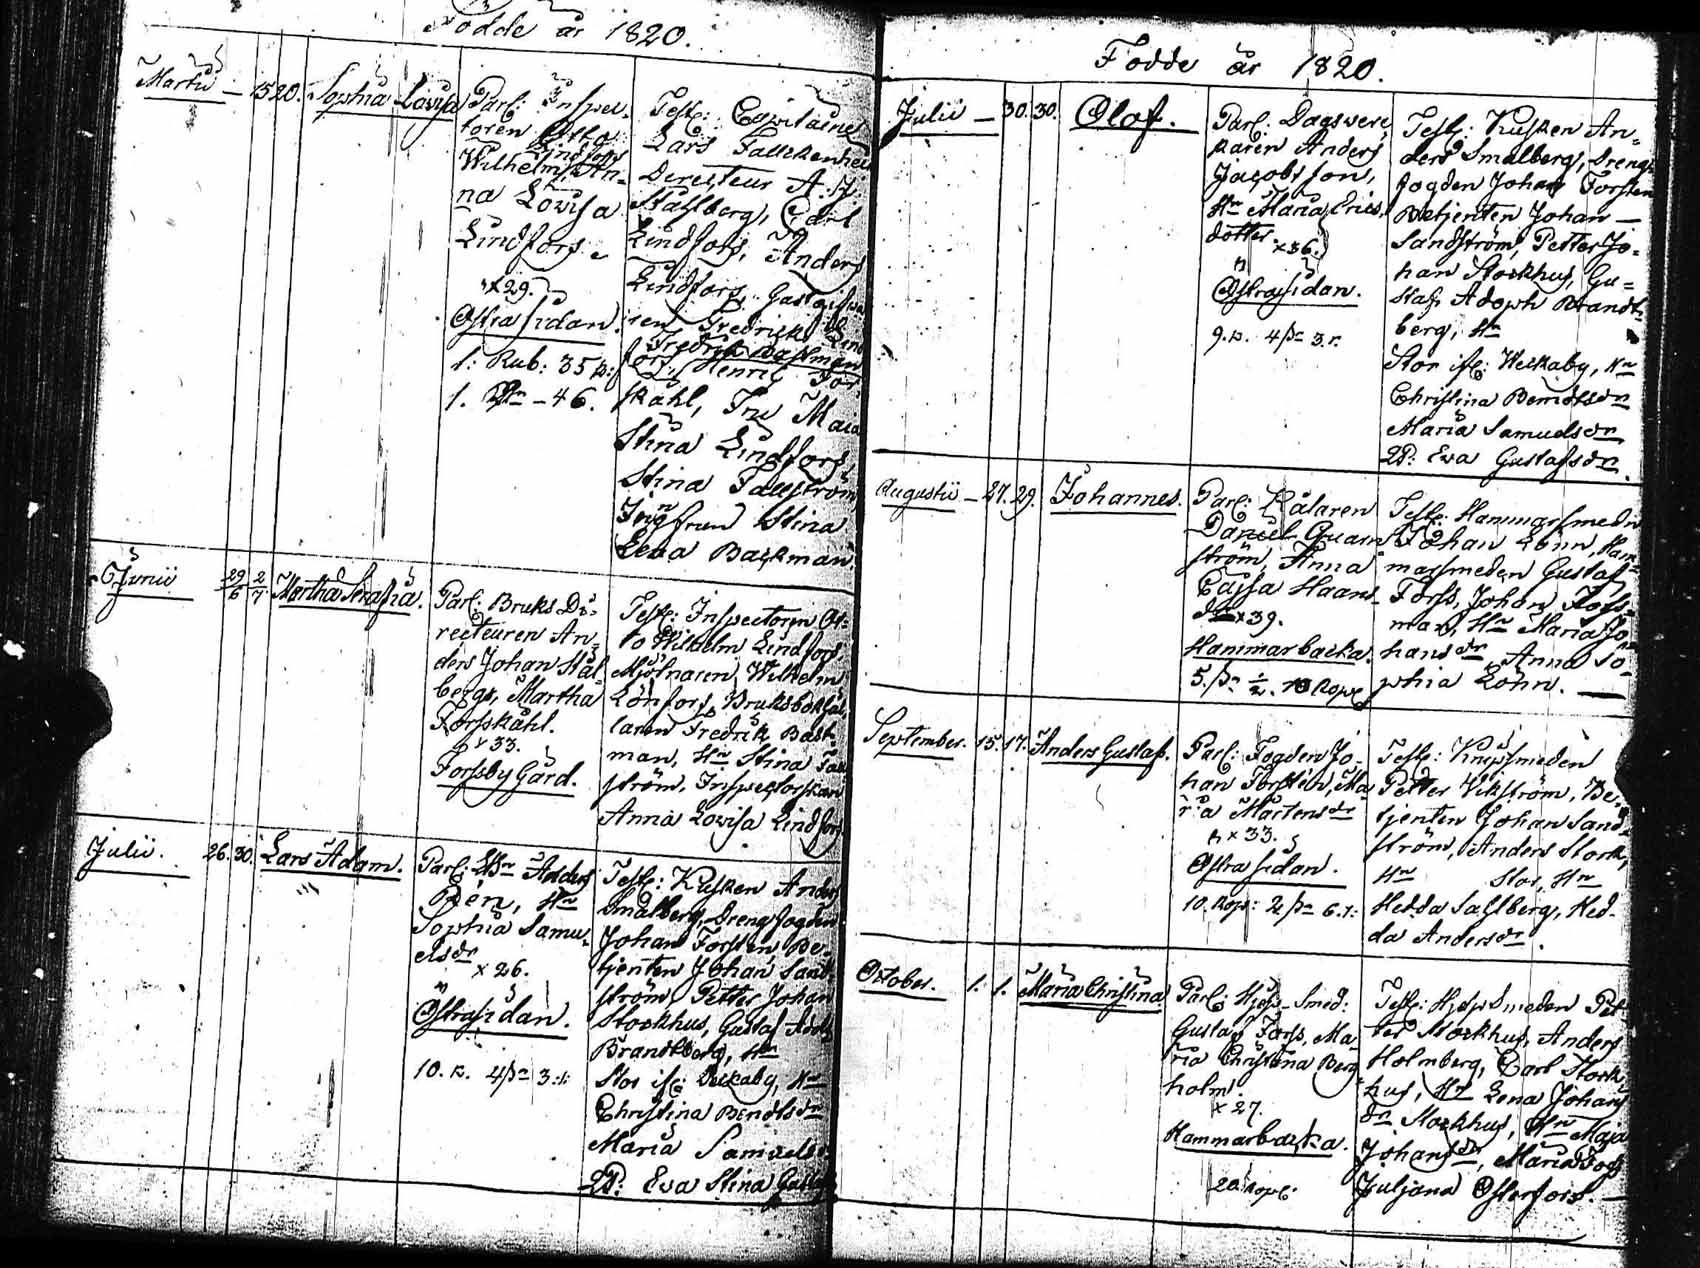 Födde år 1820.
Martii – 15 20. Sophia Lovisa
Par: Inspec-
toren Otto
Lindfors
Wilhelm, An-
na Lovisa
Lindfors.
x 29.
Östra sidan.
1: Rub: 35 k:
1. – 46.
Test: Capitaine
Lars
Directeur A. J.
Stahlberg, Carl
Lindfors, Anders
Lindfors,
Fredrick Lind
Fredrik Bastman
fors, Henric For
skåhl, Fru Maia
Stina Lindfors
Stina Fallström
Jungfrun Stina
Leva Backman
Junii 29/6 2/7 Martha Serafia.
Par: Bruks Di-
recteuren An-
ders Johan Stål-
bergs, Martha
Forsskåhl.
x 33.
Forssby Gård.
Test: Inspectoren Ot-
to Wilhelm Lindfors,
Mjölnaren Wilhelm
Lönfors, Bruksbokhål-
laren Fredrik Bast-
man, Hn Stina Fall
ström, Inspectorskan
Anna Lovisa Lindfors
Julii. 26. 30. Lars Adam.
Par: Anders
Rén, Hn
Sophia Samu-
elsdr
x 26.
Östra sidan.
10. k. 4 sn 3 r:
Test: Kusken Anders
Smalberg, Dreng fogden
Johan Forsten Be-
tjenten Johan Sand-
ström Petter Johan
Stockhus, Gustaf Adolf
Brandtberg, Hn
Stor Weckaby, Hn
Christina Bendtsdr
Maria Samuels
2P: Eva Stina Gustafs
Födde år 1820.
Julii – 30. 30. Olof.
Par: Dagsver-
karen Anders
Jacobsson,
Hn Maria Erics
dotter x 36.
Östra sidan.
9. k. 4 sn 3. r.
Test: Kusken An-
ders Smalberg, Dreng
fogden Johan Forsten
Betjenten Johan –
Sandström, Petter Jo-
han Stockhus, Gu-
staf Adoph Brandt-
berg, Hn
Stor Weckaby, Hn
Christina Bendtsdr
Maria Samuelsdr
2P: Eva Gustafsdr.
Augustii – 27. 29. Johannes.
Par: Kålaren
Daniel Quarn-
ström, Anna
Cajsa Haans-
dr x 39.
Hammarbacka.
5. sn ½. 10 Kop:
Test: Hammarsmedn
Johan Lönn, Ham-
marsmeden Gustaf
Forss, Johan Koss-
man, Hn Maria Jo
hansdr Anna So-
phia Lönn. –
September. 15. 17. Anders Gustaf.
Par: Fogden Jo-
han Forsten, Ma-
ria Mårtensdr
x 33.
Östra sidan.
10. Kop: 2 sn 6. r:
Test: Knipsmeden
Petter Vikström, Be-
tjenten Johan Sand-
ström, Anders Stork,
Hn Stor, Hn
Hedda Sahlberg, Hed-
da Andersdr.
October. 1. 1. Maria Christina
Par: Hjelp Smed:
Gustaf Forss, Ma-
ria Christina Berg-
holm.
x 27.
Hammarbacka.
20 Kop:
Test: Hjelp Smeden Pet-
ter Stockhus, Anders
Holmberg, Carl Stock-
hus, Hn Lena Johans
dr Stockhus, Hn Maja
Johansdr, Maria
Juliana Österfors. –